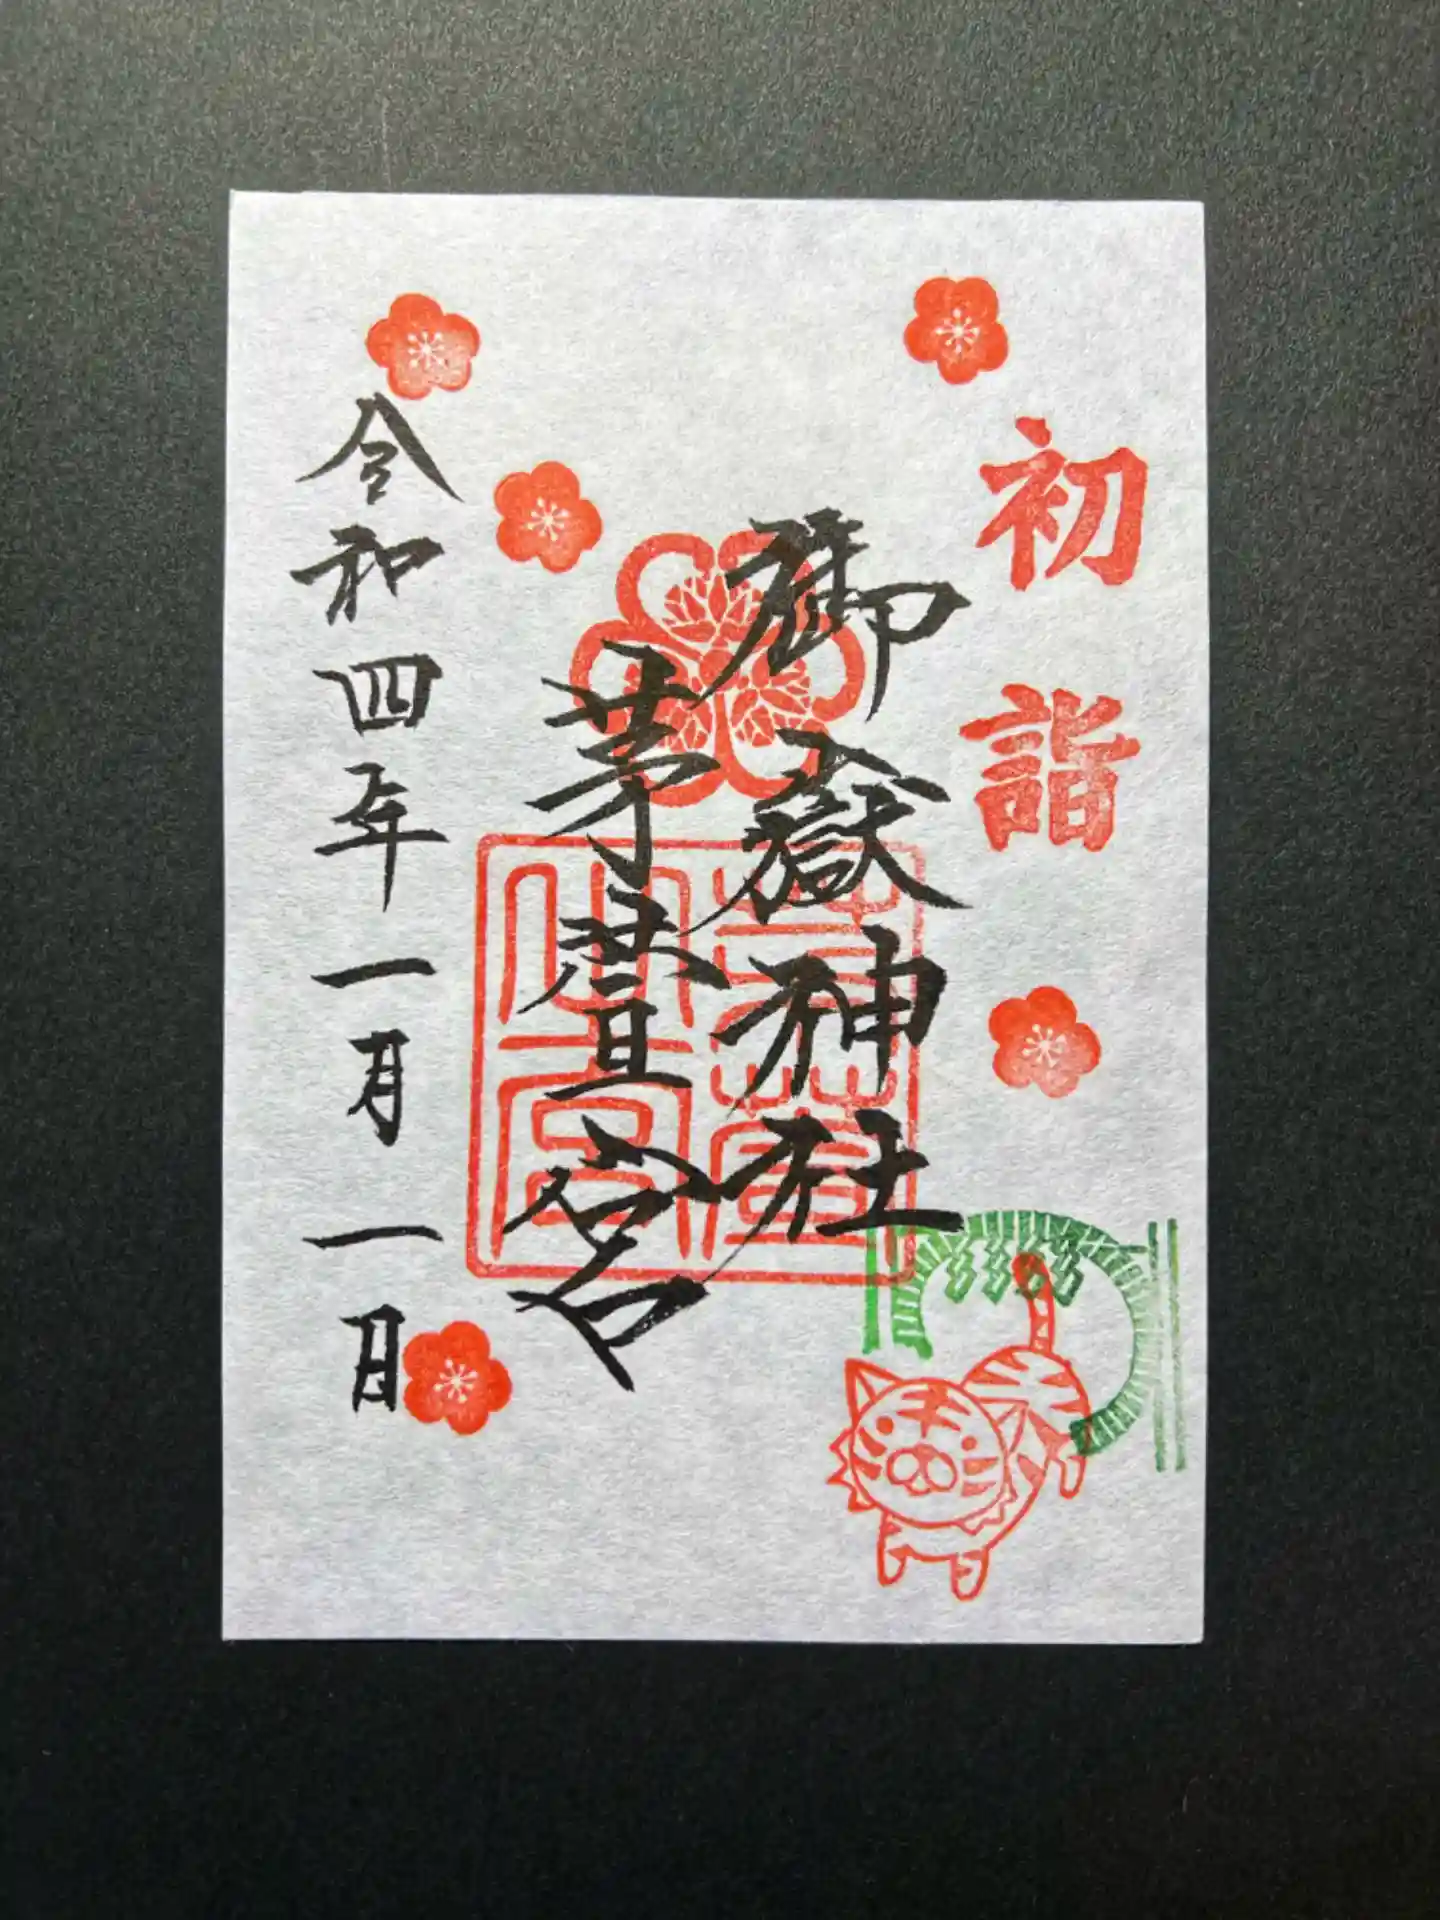 初詣
御嶽神社
茅萱宮
令和四年一月一日